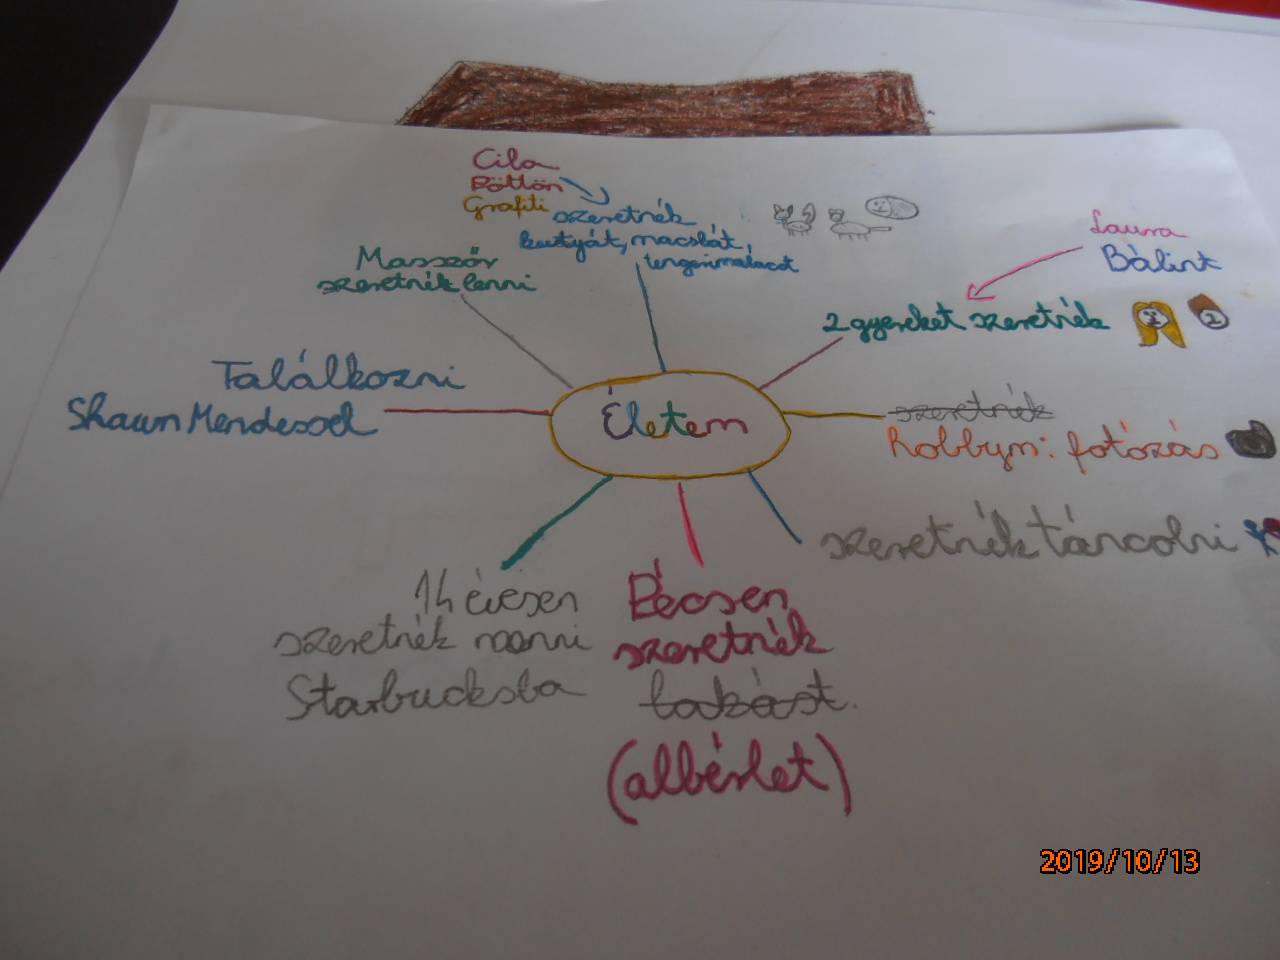 Cila
Pöttön
Grafiti
szeretnék
kutyát, macskát,
tengerimalacot
Masszőr
szeretnék lenni
Laura
Bálint
2 gyereket szeretnék
Találkozni
Shawn Mendessel
Életem
szeretnék
hobbym: fotózás
szeretnék táncolni
14 évesen
szeretnék menni
Starbucksba
Pécsen
szeretnék
lakást.
(albérlet)
2019/10/13